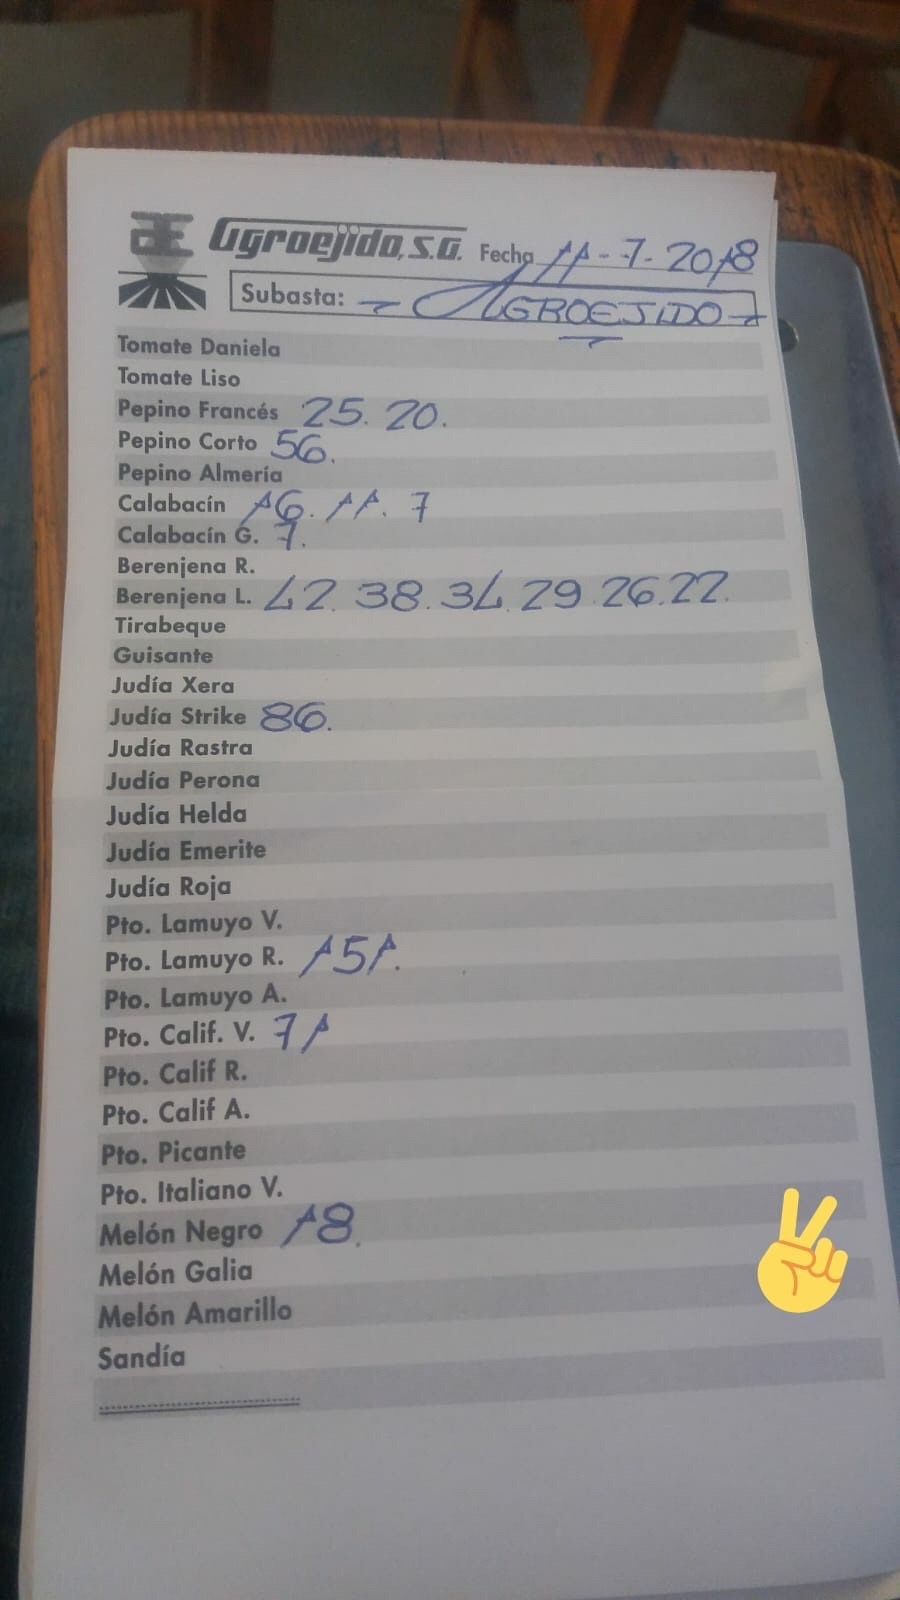 Agroejido, S.A. Fecha 11-7-2018
Subasta: - AGROEJIDO -
Tomate Daniela
Tomate Liso
Pepino Francés 25. 20.
Pepino Corto 56.
Pepino Almería
Calabacín 16. 11. 7
Calabacín G. 7.
Berenjena R.
Berenjena L. 42. 38. 34. 29. 26. 22.
Tirabeque
Guisante
Judía Xera
Judía Strike 86.
Judía Rastra
Judía Perona
Judía Helda
Judía Emerite
Judía Roja
Pto. Lamuyo V.
Pto. Lamuyo R. 151.
Pto. Lamuyo A.
Pto. Calif. V. 71
Pto. Calif R.
Pto. Calif A.
Pto. Picante
Pto. Italiano V.
Melón Negro 18.
Melón Galia
Melón Amarillo
Sandía